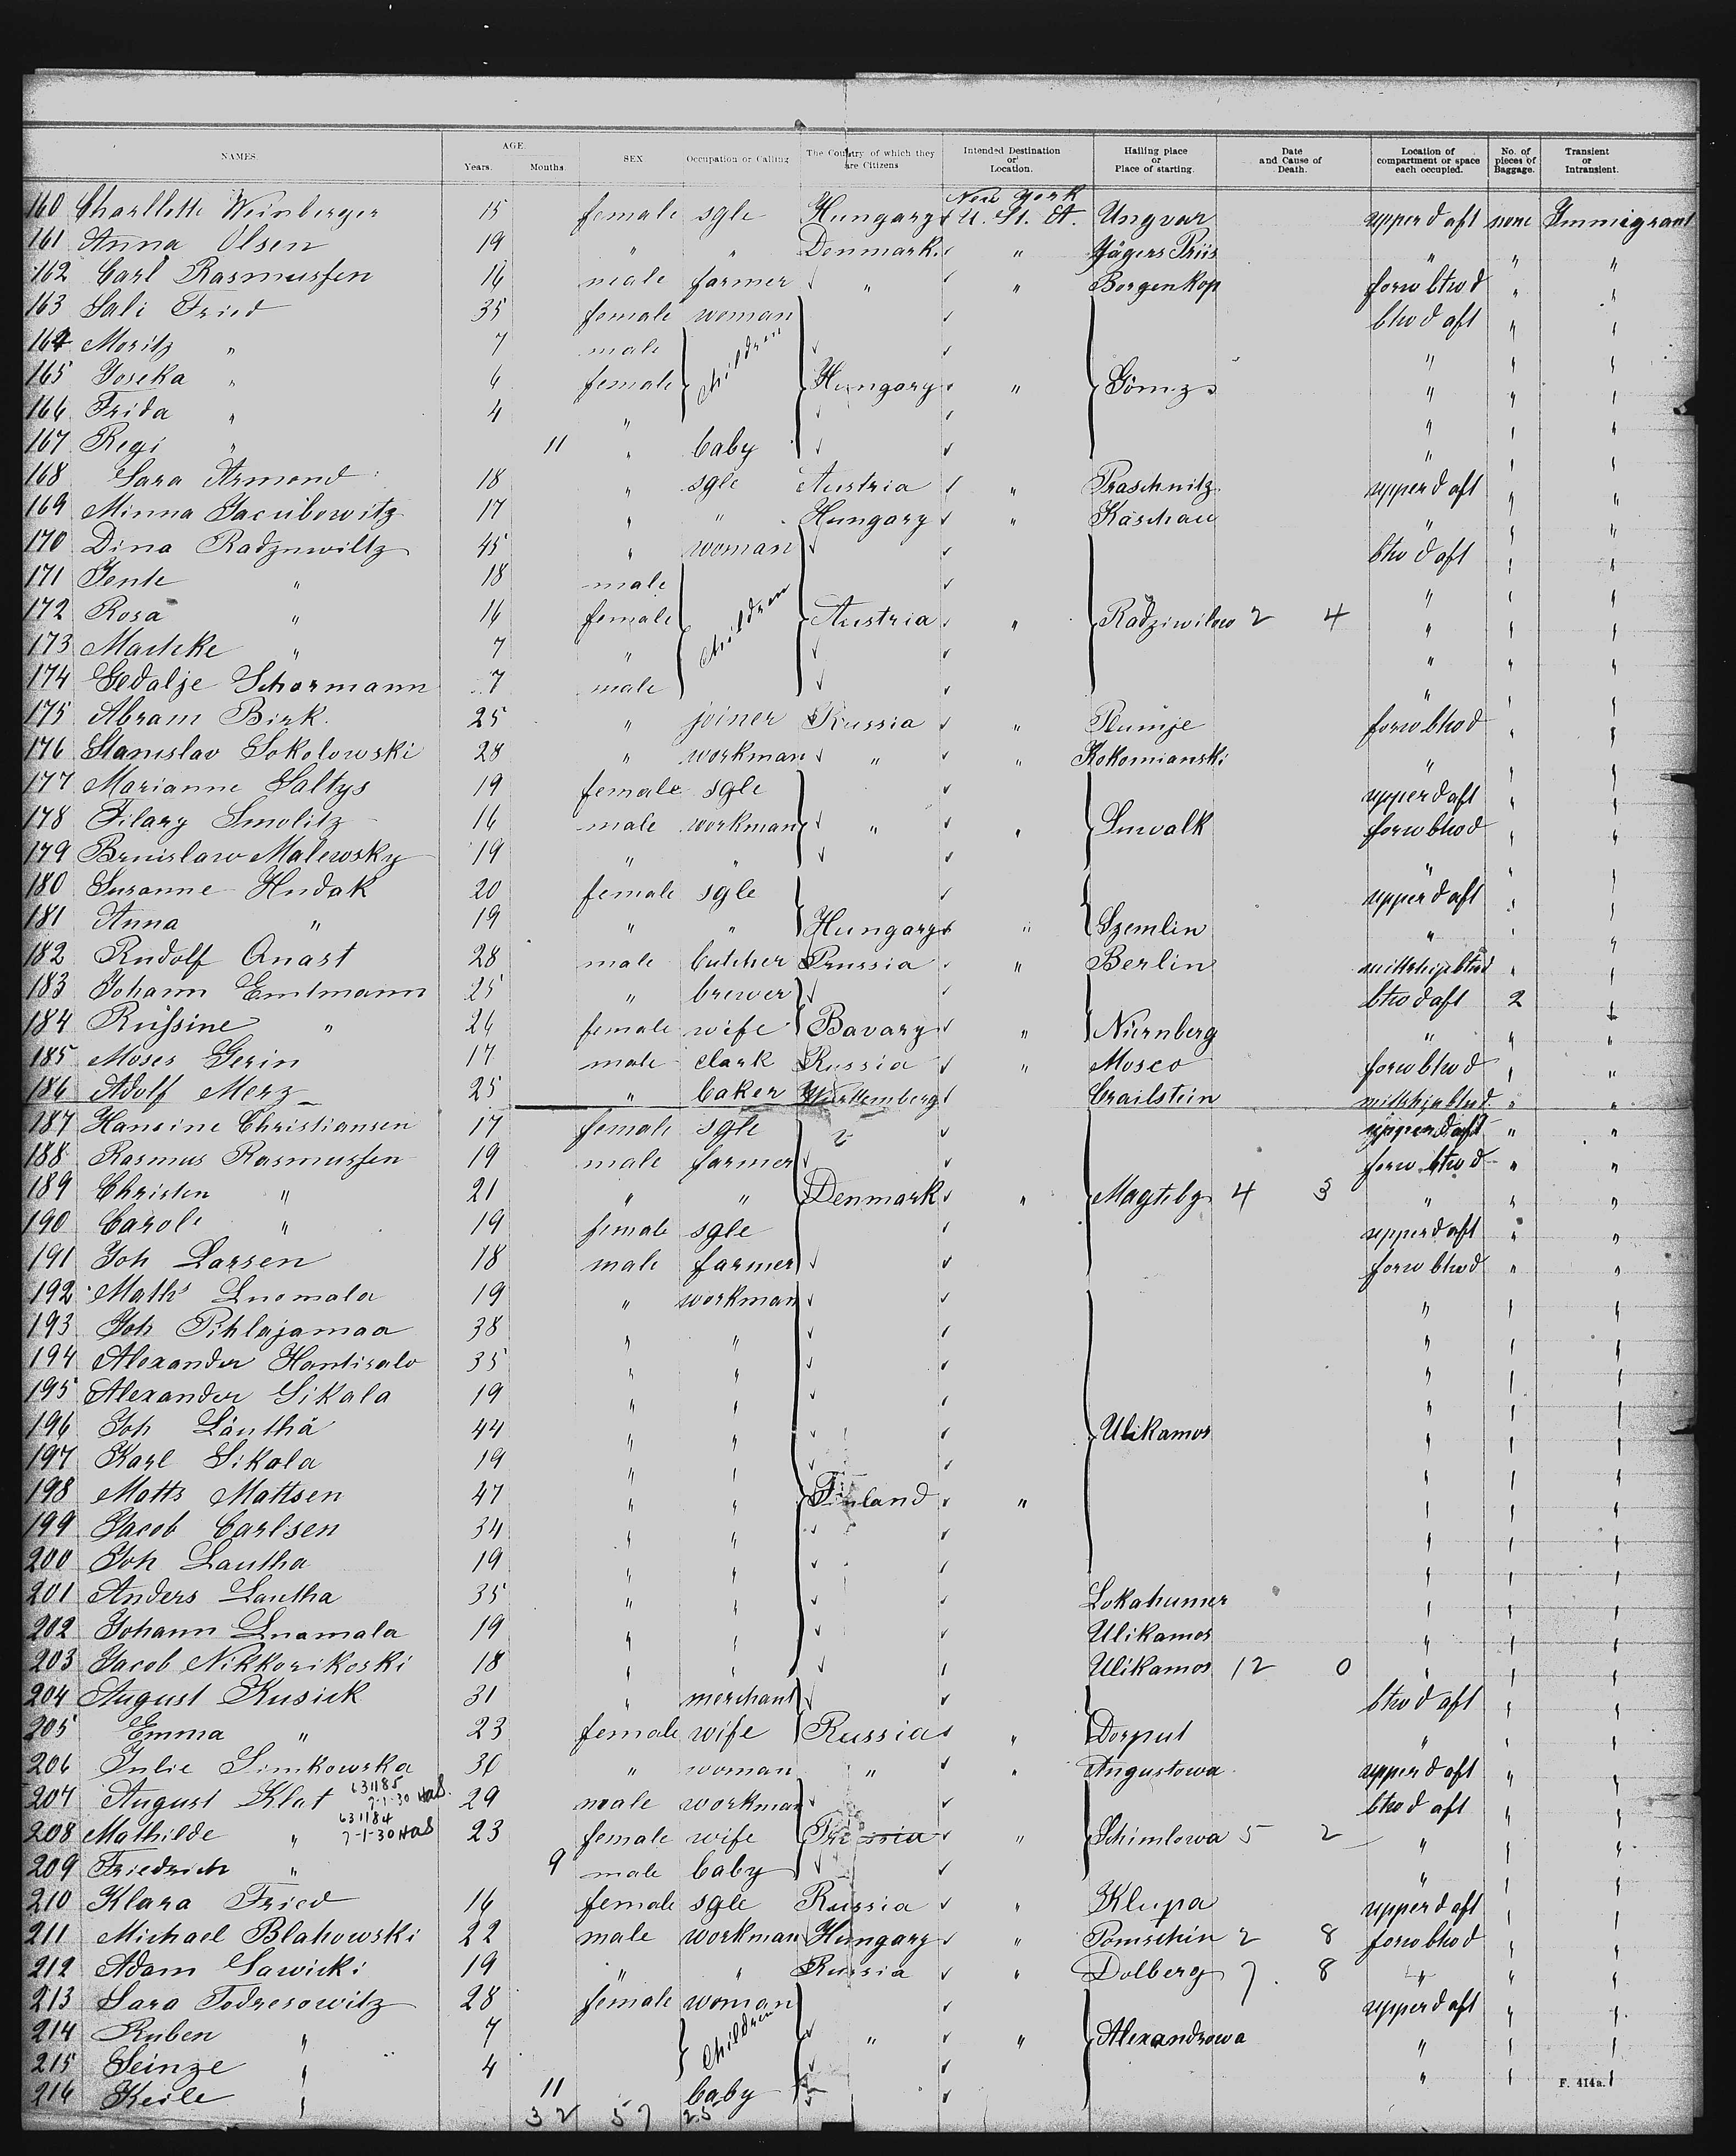 NAMES. AGE. Years. Months. SEX Occupation or Calling The Country of which they are Citizens Intended Destination or Location. Hailing place or Place of starting. Date and Cause of Death. Location of compartment or space each occupied. No. of pieces of Baggage. Transient or Intransient.
New York
160 Charllette Weinberger 15 female sgle Hungary U. St. A. Ungvar upperd aft none Immigrant
161 Anna Olsen 19 " " Denmark " Jägers Priis " " "
162 Carl Rasmussen 16 male farmer " " Borgenkop forw btwd " "
163 Sali Fried 35 female woman btwd aft " "
164 Moritz " 7 male children " " "
165 Joseka " 6 female Hungary " " " "
166 Frida " 4 " " " "
167 Regi " 11 " baby " " "
168 Sara Armond 18 " sgle Austria " Praschnitz upperd aft " "
169 Minna Jacubowitz 17 " " Hungary " Kaschau " " "
170 Dina Radznwiltz 45 " woman btwd aft " "
171 Jente " 18 male children " " "
172 Rosa " 16 female Austria " Radziwilow 2 4 " " "
173 Maschke " 7 " " " "
174 Gedalje Schormann 7 male " " "
175 Abram Birk 25 " joiner Russia " Plumje forw btwd " "
176 Stanislav Sokolowski 28 " workman " " Kokomianski " " "
177 Marianne Saltys 19 female sgle upperd aft " "
178 Filary Smolitz 16 male workman " " Suwalk forw btwd " "
179 Brnislaw Malewsky 19 " " " " "
180 Susanne Hudak 20 female sgle upperd aft " "
181 Anna " 19 " " Hungary " Szemlin " " "
182 Rudolf Anast 28 male butcher Prussia " Berlin midship btwd " "
183 Johann Emtmann 25 " brewer btwd aft 2 "
184 Russine " 26 female wife Bavary " Nürnberg " " "
185 Moses Gerin 17 male clark Russia " Mosco forw btwd " "
186 Adolf Merz 25 " baker Württemberg Crailstein midship btwd " "
187 Hansine Christiansen 17 female sgle upperd aft " "
188 Rasmus Rasmussen 19 male farmer forw btwd " "
189 Christen " 21 " " Denmark " Magtebg 4 3 " " "
190 Carole " 19 female sgle upperd aft " "
191 Joh Larsen 18 male farmer forw btwd " "
192 Maths Luomala 19 " workman " " "
193 Joh Pihlajamaa 38 " " " " "
194 Alexander Hantisalo 35 " " " " "
195 Alexander Sikala 19 " " " " "
196 Joh Läuthä 44 " " Ulikamos " " "
197 Karl Sikala 19 " " " " "
198 Matts Mattsen 47 " " Finland " " " "
199 Jacob Carlsen 34 " " " " "
200 Joh Lautha 19 " " " " "
201 Anders Lautha 35 " " Lokahumer " " "
202 Johann Luamala 19 " " Ulikamos " " "
203 Jacob Nikkorikoski 18 " " Ulikamos 12 0 " " "
204 August Kusick 31 " merchant btwd aft " "
205 Emma " 23 female wife Russia " Dorput " " "
206 Julie Simkowska 30 " woman " " Augustowa upperd aft " "
207 August Klat 631185 7-1-30 HaS. 29 male workman btwd aft " "
208 Mathilde " 631184 7-1-30 HaS 23 female wife Prussia " Schimlowa 5 2 " " "
209 Friedrich " 9 male baby " " "
210 Klara Fried 16 female sgle Russia " Klupa upperd aft " "
211 Michael Blahowski 22 male workman Hungary " Pomschin 2 8 forw btwd " "
212 Adam Sawicki 19 " " Russia " Dolberg 7 8 " " "
213 Sara Todresowitz 28 female woman upperd aft " "
214 Ruben " 7 children " " Alexandrowa " " "
215 Seinze " 4 " " "
216 Keile " 11 baby
32 57 25
F. 414a.